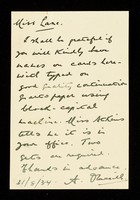 Miss Lane.
I shall be grateful if
you will kindly have
names on cards here-
with typed on
good continuation
quarto paper using
block-capital
machine. Miss Atkins
tells me it is in
your office. Two
sets are required.
Thanks in advance
21/8/34. A.